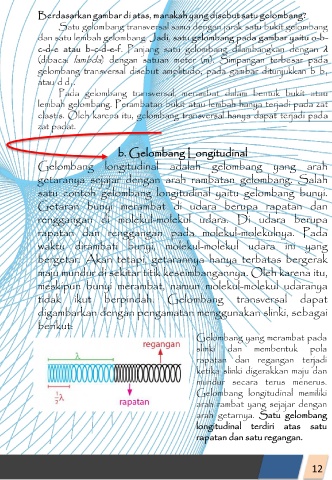 Berdasarkan gambar di atas, manakah yang disebut satu gelombang?
Satu gelombang transversal sama dengan jarak satu bukit gelombang
dan satu lembah gelombang. Jadi, satu gelombang pada gambar yaitu a-b-
c-d-e atau b-c-d-e-f. Panjang satu gelombang dilambangkan dengan λ
(dibaca lambda) dengan satuan meter (m). Simpangan terbesar pada
gelombang transversal disebut amplitudo, pada gambar ditunjukkan b b1
atau d d1
Pada gelombang transversal merambat dalam bentuk bukit atau
lembah gelombang. Perambatan bukit atau lembah hanya terjadi pada zat
elastis. Oleh karena itu, gelombang transversal hanya dapat terjadi pada
zat padat.
b. Gelombang Longitudinal
Gelombang longitudinal adalah gelombang yang arah
getarannya sejajar dengan arah rambatan gelombang. Salah
satu contoh gelombang longitudinal yaitu gelombang bunyi.
Getaran bunyi merambat di udara berupa rapatan dan
renggangan di molekul-molekul udara. Di udara berupa
rapatan dan renggangan pada molekul-molekulnya. Pada
waktu dirambati bunyi, molekul-molekul udara ini yang
bergetar. Akan tetapi, getarannya hanya terbatas bergerak
maju mundur di sekitar titik keseimbangannya. Oleh karena itu,
meskipun bunyi merambat, namun molekul-molekul udaranya
tidak ikut berpindah. Gelombang transversal dapat
digambarkan dengan pengamatan menggunakan slinki, sebagai
berikut:
regangan
λ
λ
rapatan
Gelombang yang merambat pada
slinki dan membentuk pola
rapatan dan regangan terjadi
ketika slinki digerakkan maju dan
mundur secara terus menerus.
Gelombang longitudinal memiliki
arah rambat yang sejajar dengan
arah getarnya. Satu gelombang
longitudinal terdiri atas satu
rapatan dan satu regangan.
12